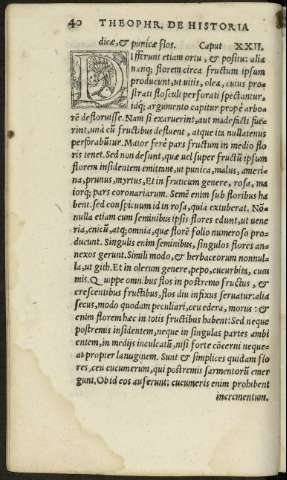 40 THEOPHR. DE HISTORIA
dicæ, & punicæ flos. Caput XXII.
DIfferunt etiam ortu, & positu: alia
nanq; florem circa fructum ipsum
producunt, ut uitis, olea, cuius pro-
strati flosculi perforati spectantur,
idq; argumento capitur propè arbo-
rē defloruisse. Nam si exaruerint, aut madefacti fue-
rint, unà cũ fructibus defluent, atque ita nullatenus
perforabũtur. Maior ferè pars fructum in medio flo
ris tenet. Sed non desunt, quæ uel super fructũ ipsum
florem insidentem emittant, ut punica, malus, ameri-
na, prunus, myrtus, Et in fruticum genere, rosa, ma
iorq; pars coronariarum. Semē enim sub floribus ha
bent. sed conspicuum id in rosa, quia extuberat. Nō
nulla etiam cum seminibus ipsis flores edunt, ut uene
ria, cnicũ, atq; omnia, quæ florē folio numeroso pro-
ducunt. Singulis enim seminibus, singulos flores an-
nexos gerunt. Simili modo, & herbaceorum nonnul-
la, ut gith. Et in olerum genere, pepo, cucurbita, cucu
mis. Quippe omnibus flos in postremo fructus, &
crescentibus fructibus, flos diu infixus seruatur: alia
secus, modo quodam peculiari, ceu edera, morus: &
enim florem hæc in totis fructibus habent: Sed neque
postremis insidentem, neque in singulas partes ambi
entem, in medijs inculcatũ, nisi forte cōcerni nequeat
propter lanuginem. Sunt & simplices quidam flo
res, ceu cucumerum, qui postremis sarmentorũ emer
gunt, Ob id eos auferunt: cucumeris enim prohibent
incrementum.